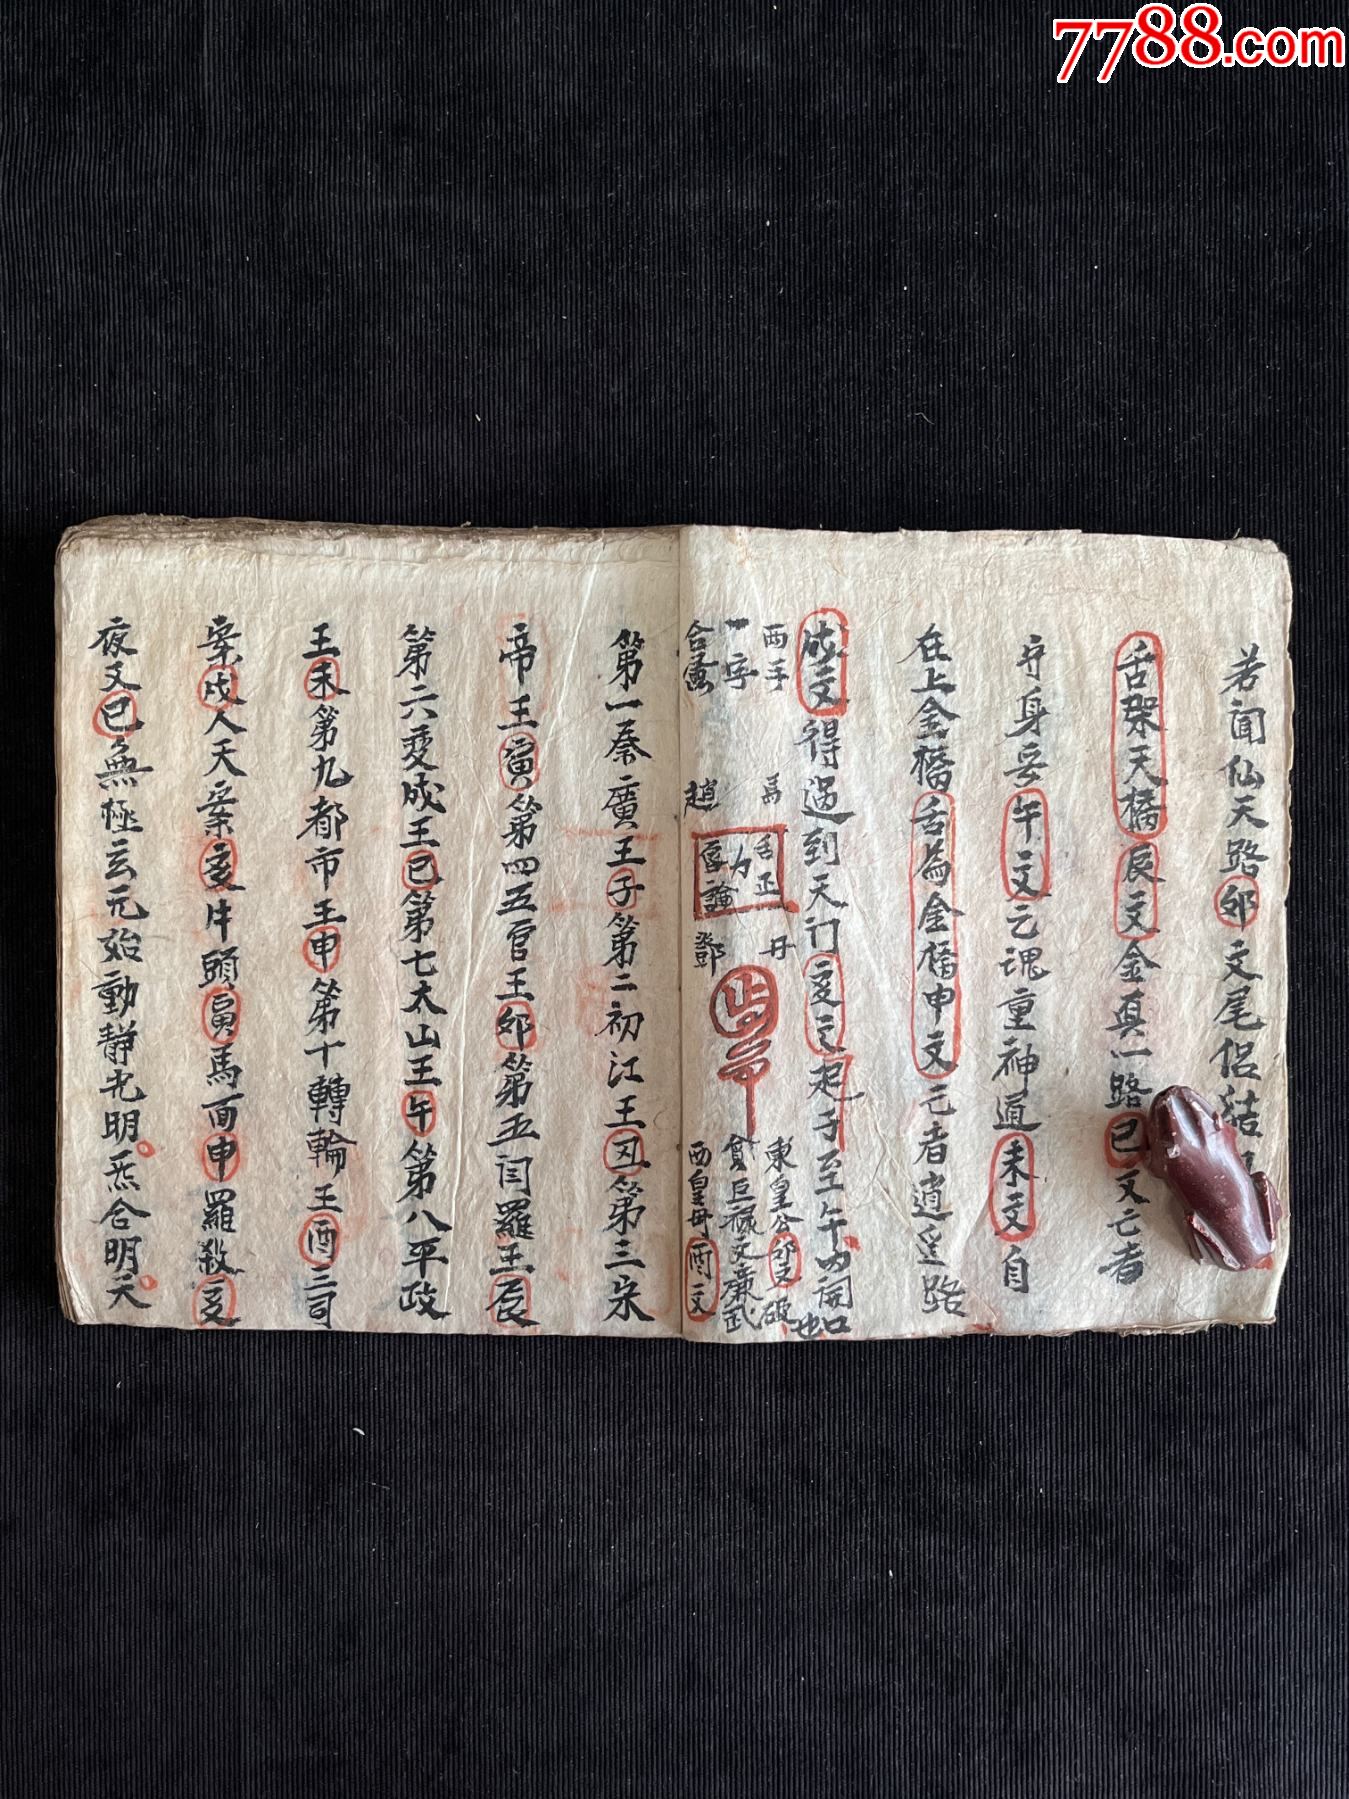 7788.com
若聞仙天路卯文尾侶結
舌架天橋辰文金真一路巳文亡者
守身兵午文亡魂重神道未文自
在上金橋舌為金橋申文亡者逍遥路
戌文得過到天门亥文起子至午内開口也
西手
一字
馬
趙
舌正
力
鄧
東皇公卯文破
貪巨禄文廉武
西皇母酉文
第一秦廣王子第二初江王丑第三宋
帝王寅第四五官王卯第五闫羅王辰
第六变成王巳第七太山王午第八平政
王未第九都市王申第十轉輪王酉三司
案戌人天案亥牛頭寅馬面申羅殺亥
夜叉巳無極玄元始動靜光明炁合明天